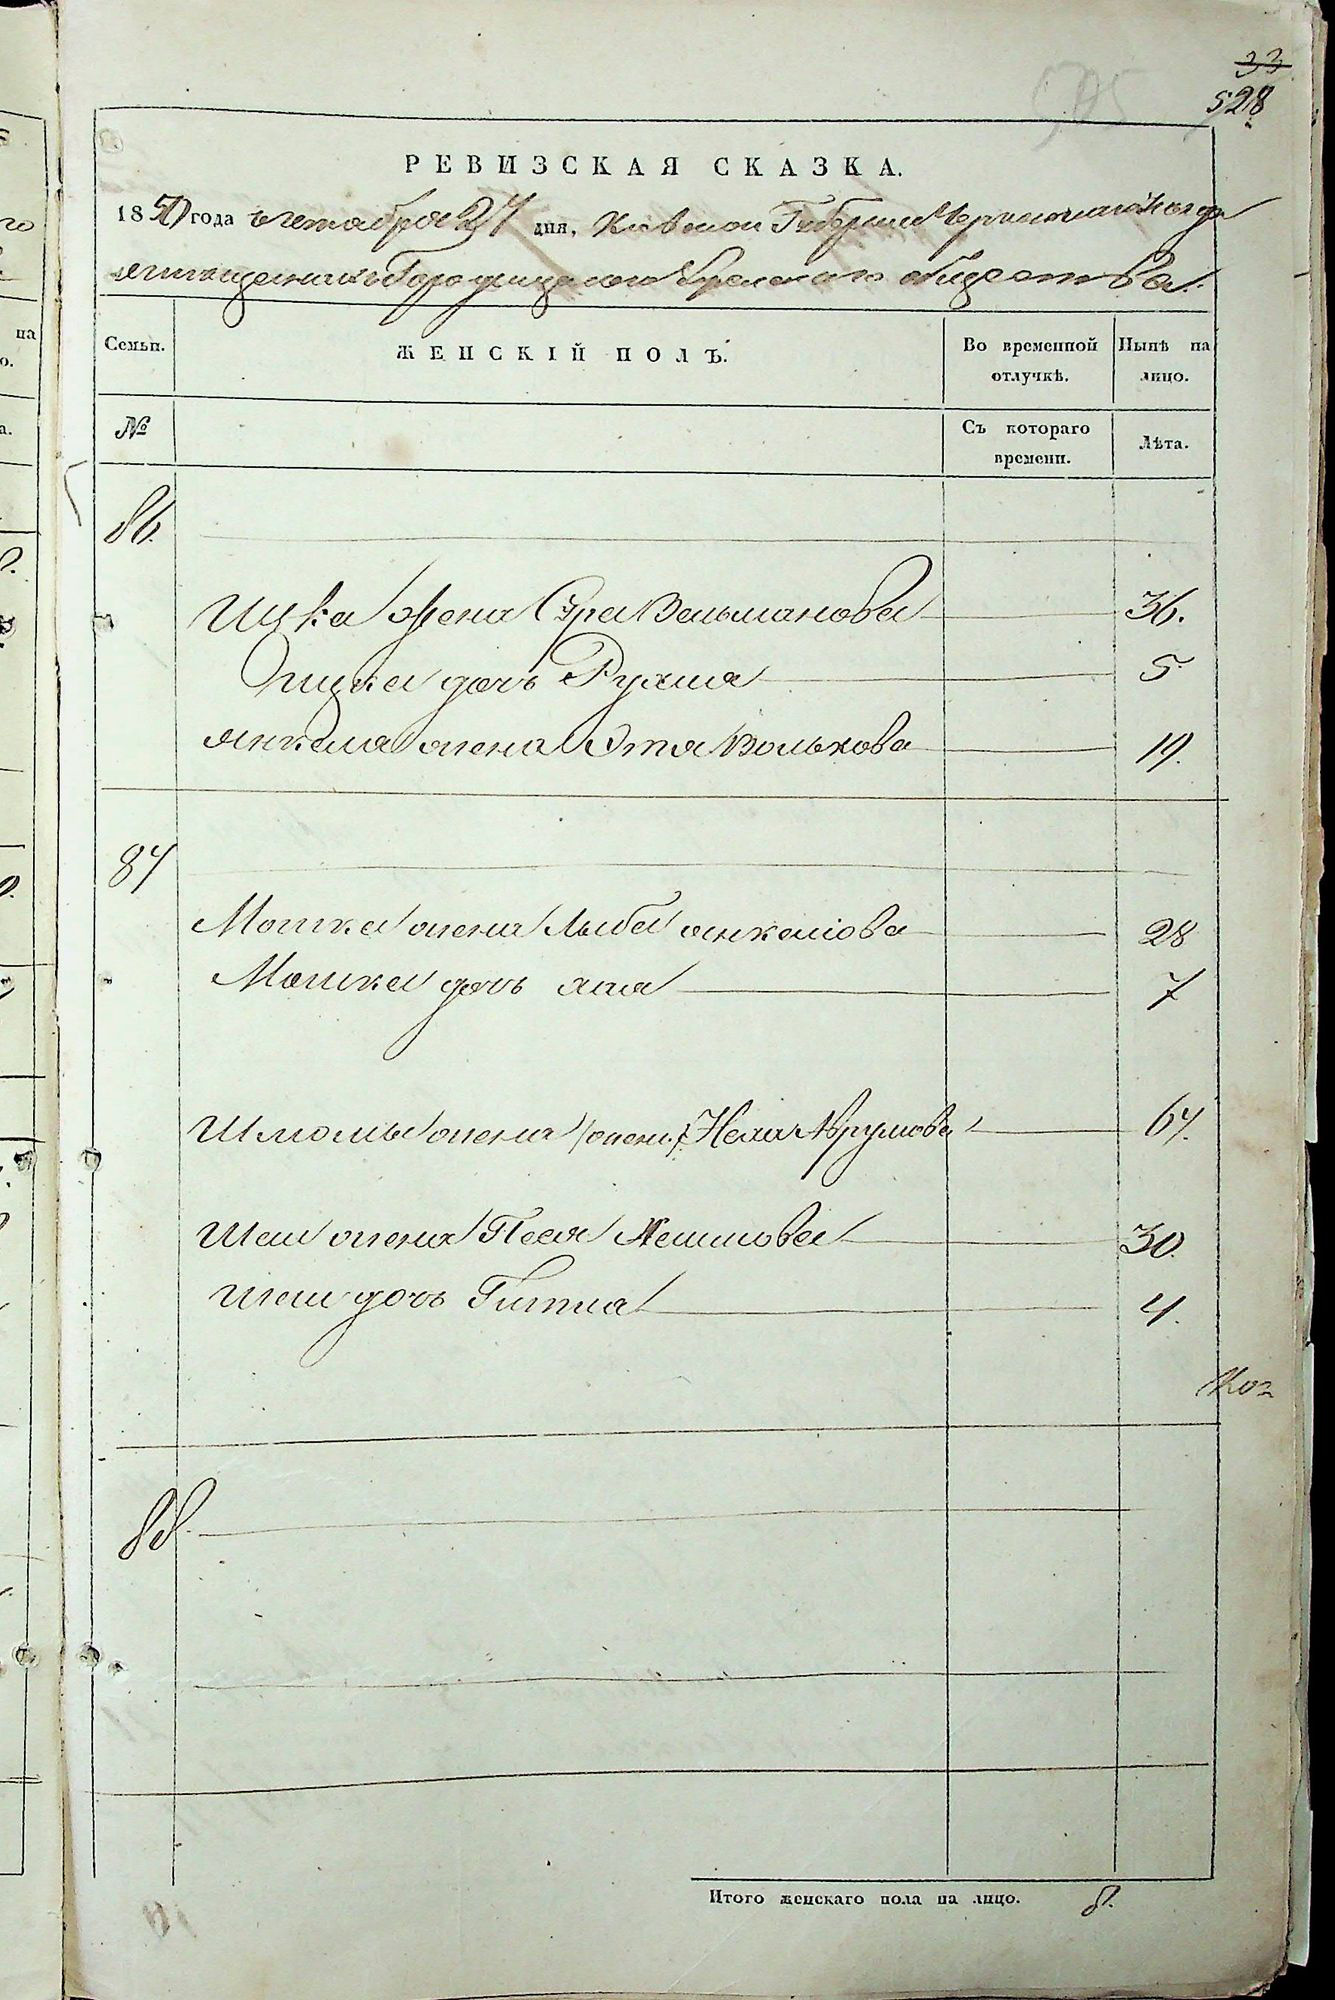 33
528
505
РЕВИЗСКАЯ СКАЗКА.
1850 года октября 27 дня, Киевской Губернии Черкасскаго уезда
мещанъ Городищскаго Еврейскаго общества.
Семьи. ЖЕНСКІЙ ПОЛЪ. Во временной отлучкѣ. Нынѣ на лицо.
№ Съ котораго времени. Лѣта.
86.
Ицка жена Сура Вельманова 36.
Ицка дочь Рухля 5
Янкеля жена Этя Волькова 19.
87
Мошка жена Лыба Янкелова 28
Мошка дочь 7
Шломы жена Неха Аврумова 67.
жена Песя 30.
дочь Гитля 4.
88.
Итого женскаго пола на лицо. 8.